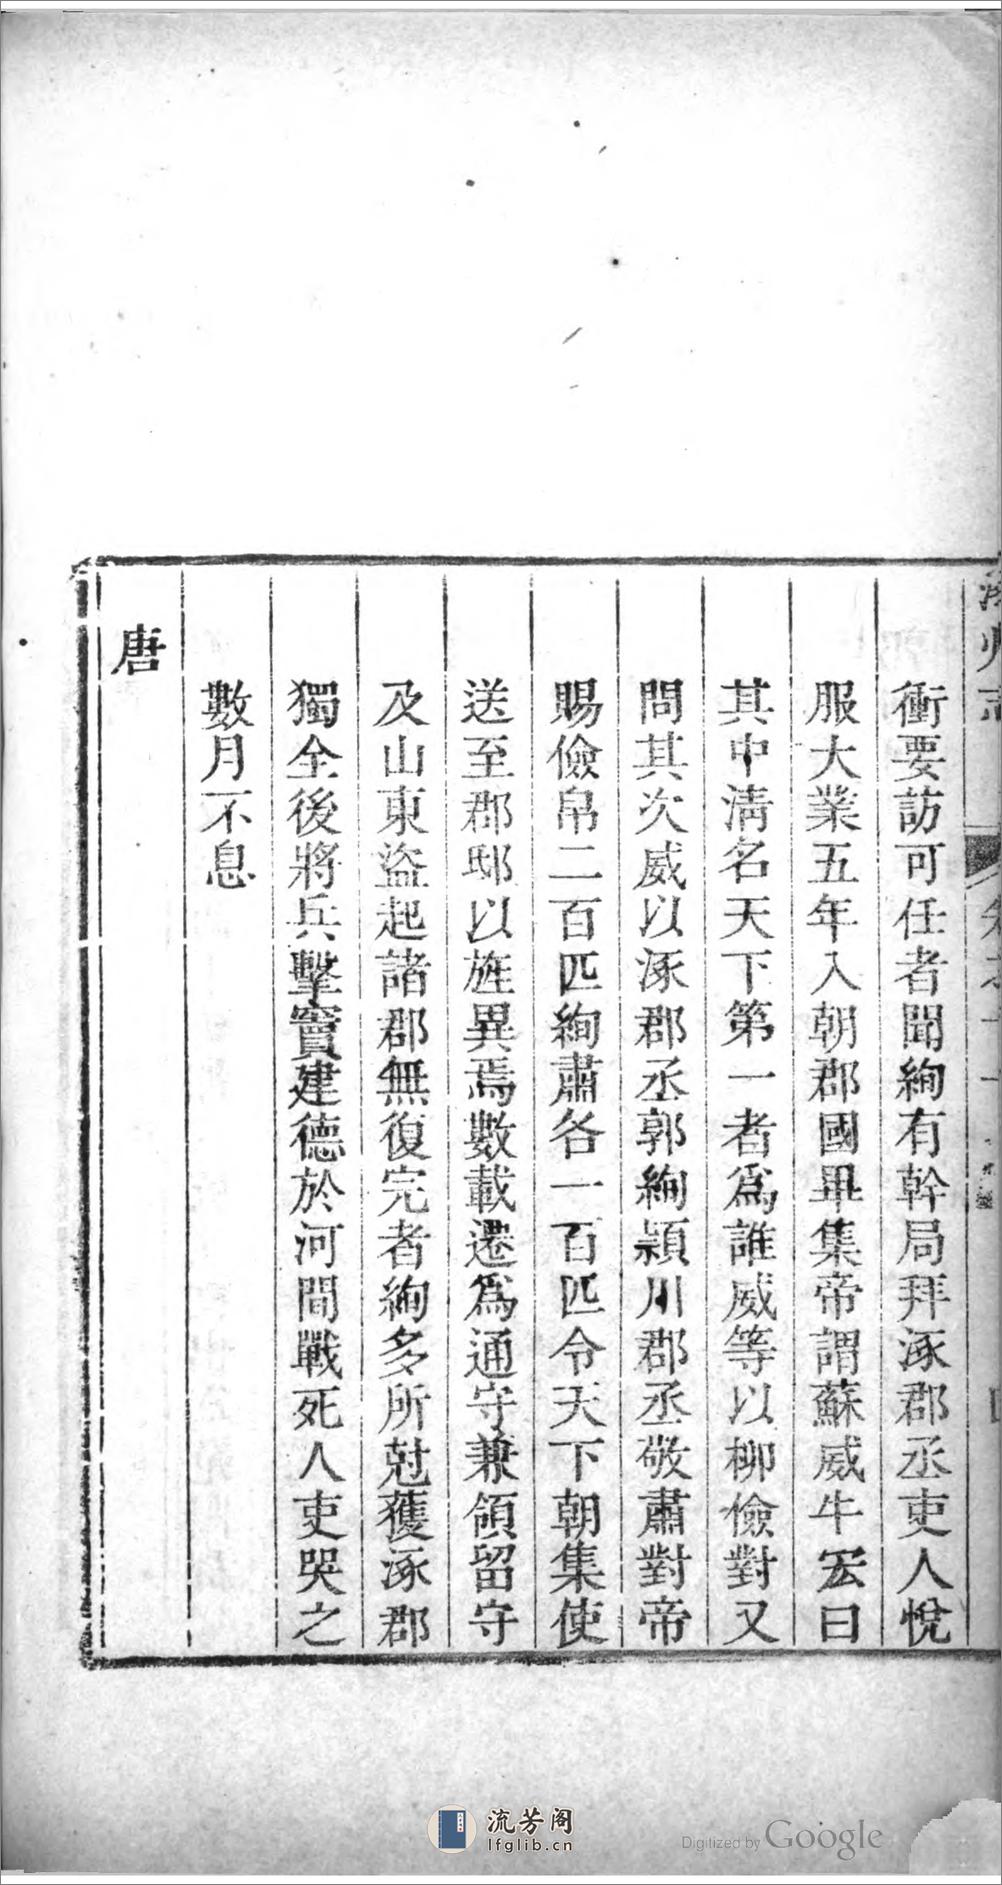 衝要訪可任者聞絢有幹局拜涿郡丞吏人悅
服大業五年入朝郡國畢集帝謂蘇威牛宏曰
其中清名天下第一者爲誰威等以柳儉對又
問其次威以涿郡丞郭絢潁川郡丞敬肅對帝
賜儉帛二百匹絢肅各一百匹令天下朝集使
送至郡邸以旌異焉數載遷爲通守兼領留守
及山東盜起諸郡無復完者絢多所尅獲涿郡
獨全後將兵擊竇建德於河間戰死人吏哭之
數月不息
唐
流芳阁
lfglib.cn
Digitized by Google